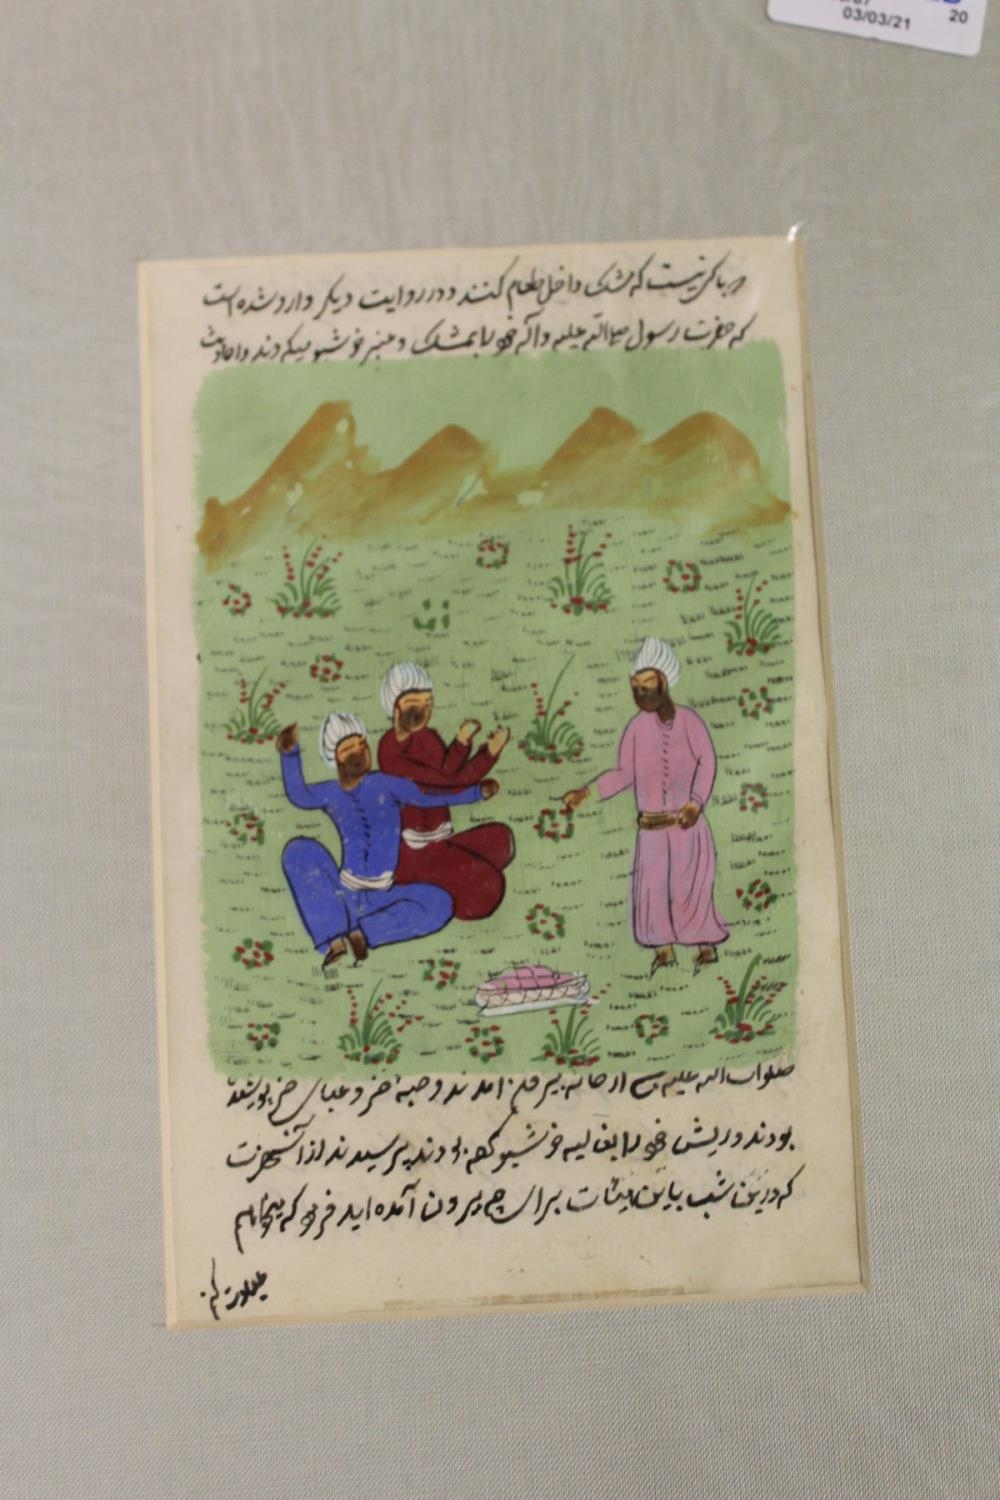 03/03/21
20
باکی نیست که مشک داخل طعام کنند و در روایت دیگر وارد شده است
که حضرت رسول صلی الله علیه و آله خود را بمشک و عنبر خوشبو میکردند و احادیث
صلوات الله علیه از خانه بیرون آمدند و جبه خز و عبای خز پوشیده
بودند و ریش خود را بغالیه خوشبو کرده بودند پرسیدند از آنحضرت
که درین شب باین هیئات برای چه بیرون آمده اید فرمود که میخواهم